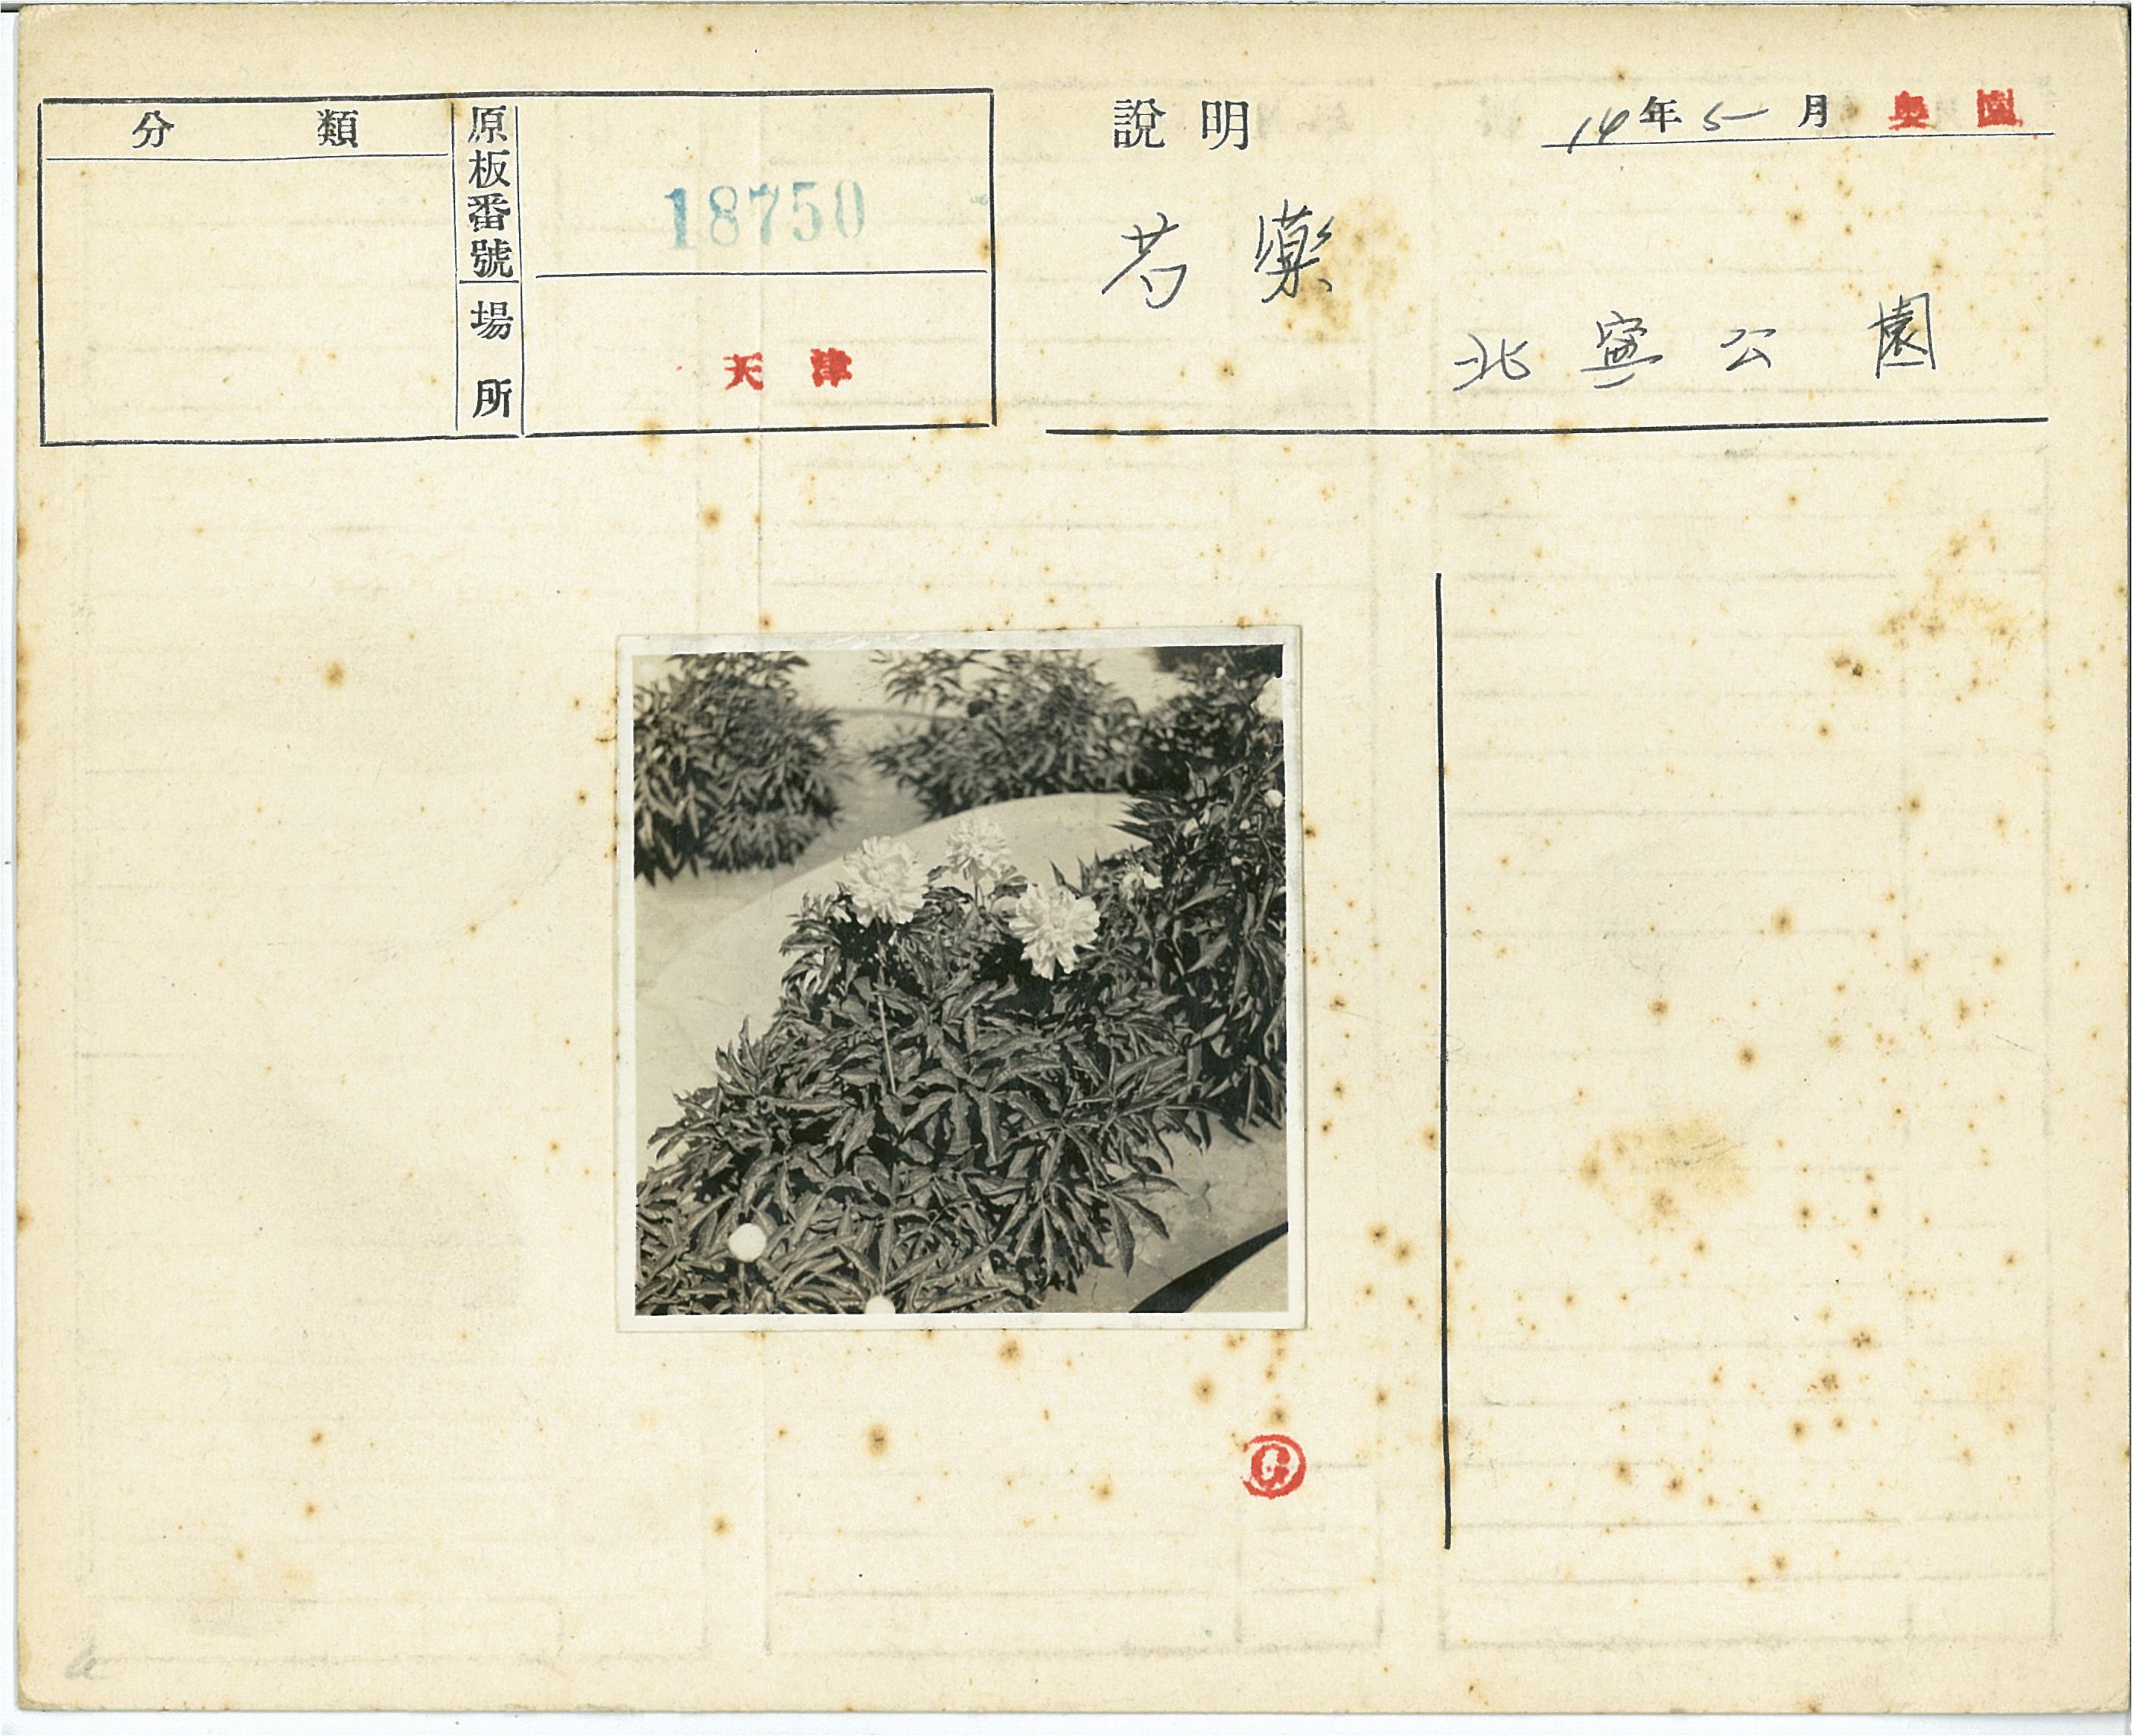 分類
原板番號
18750
場所
天津
說明
14年5月
芍藥
北寧公園
G